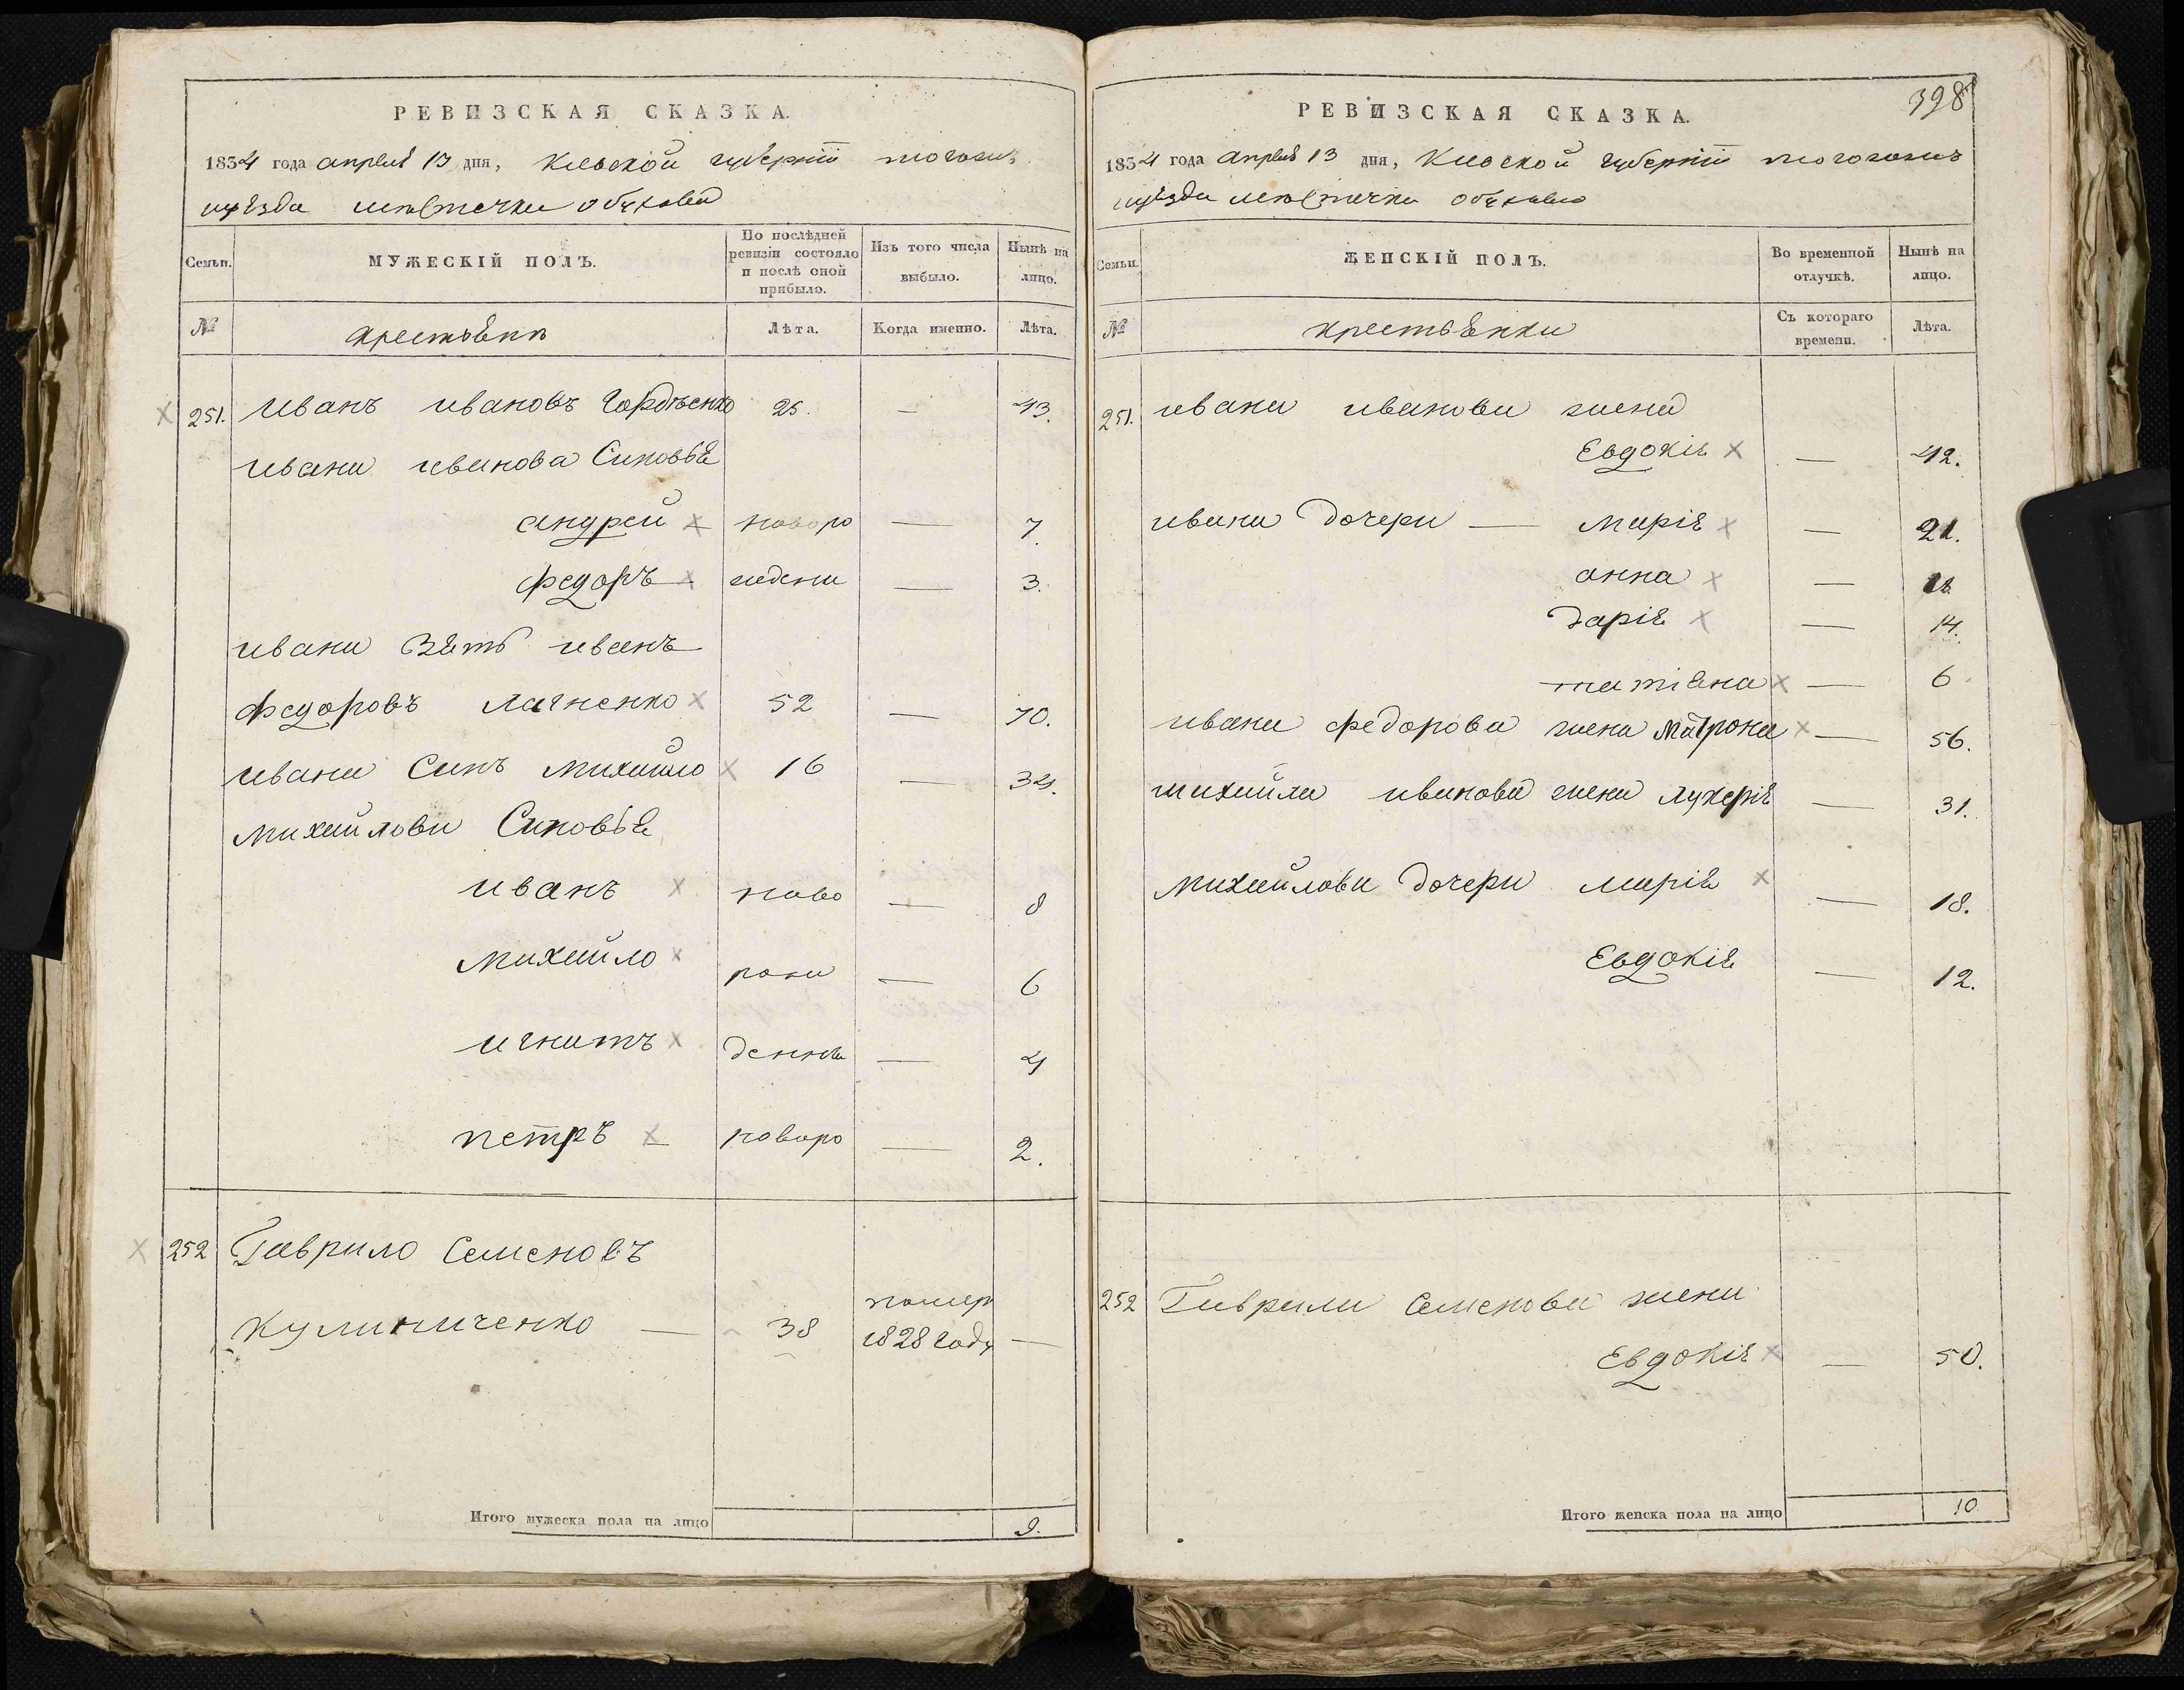 РЕВИЗСКАЯ СКАЗКА.
1834 года апреля 13 дня, Киевской губернии тогожъ
уезда местечка обухова
Семьи.
МУЖЕСКІЙ ПОЛЪ.
По послѣдней ревизіи состояло и послѣ оной прибыло.
Изъ того числа выбыло.
Нынѣ на лицо.
№
крестьяне
Лѣта.
Когда именно.
Лѣта.
251. иванъ ивановъ гордѣенко 25. — 43.
ивана иванова Синовья
андрей х новоро — 7.
федоръ х ждени — 3.
ивана Зять иванъ
федоровъ лагненко х 52 — 70.
ивана Синъ михайло х 16 — 34.
михайлови Синовья
иванъ х ново — 8
михайло х рож — 6
игнатъ х денни — 4
петръ х новоро — 2.
252 Гаврило Семеновъ
помер
кулиниченко — 38 1828 году —
Итого мужеска пола на лицо 9.
398
РЕВИЗСКАЯ СКАЗКА.
1834 года апреля 13 дня, Киевской губернии тогожъ
уезда местечка обухова
Семьи.
ЖЕНСКІЙ ПОЛЪ.
Во временной отлучкѣ.
Нынѣ на лицо.
№
крестьянки
Съ котораго времени.
Лѣта.
251. ивана иванова жена
Евдокія х — 42.
ивана дочери — марія х — 21.
анна х — 18
дарія х — 14.
татіяна х — 6
ивана федорова жена матрона х — 56.
михайла иванова жена лукерія — 31.
михайлови дочери марія х — 18.
Евдокія — 12.
252 Гаврили Семенова жена
Евдокія х — 50.
Итого женска пола на лицо 10